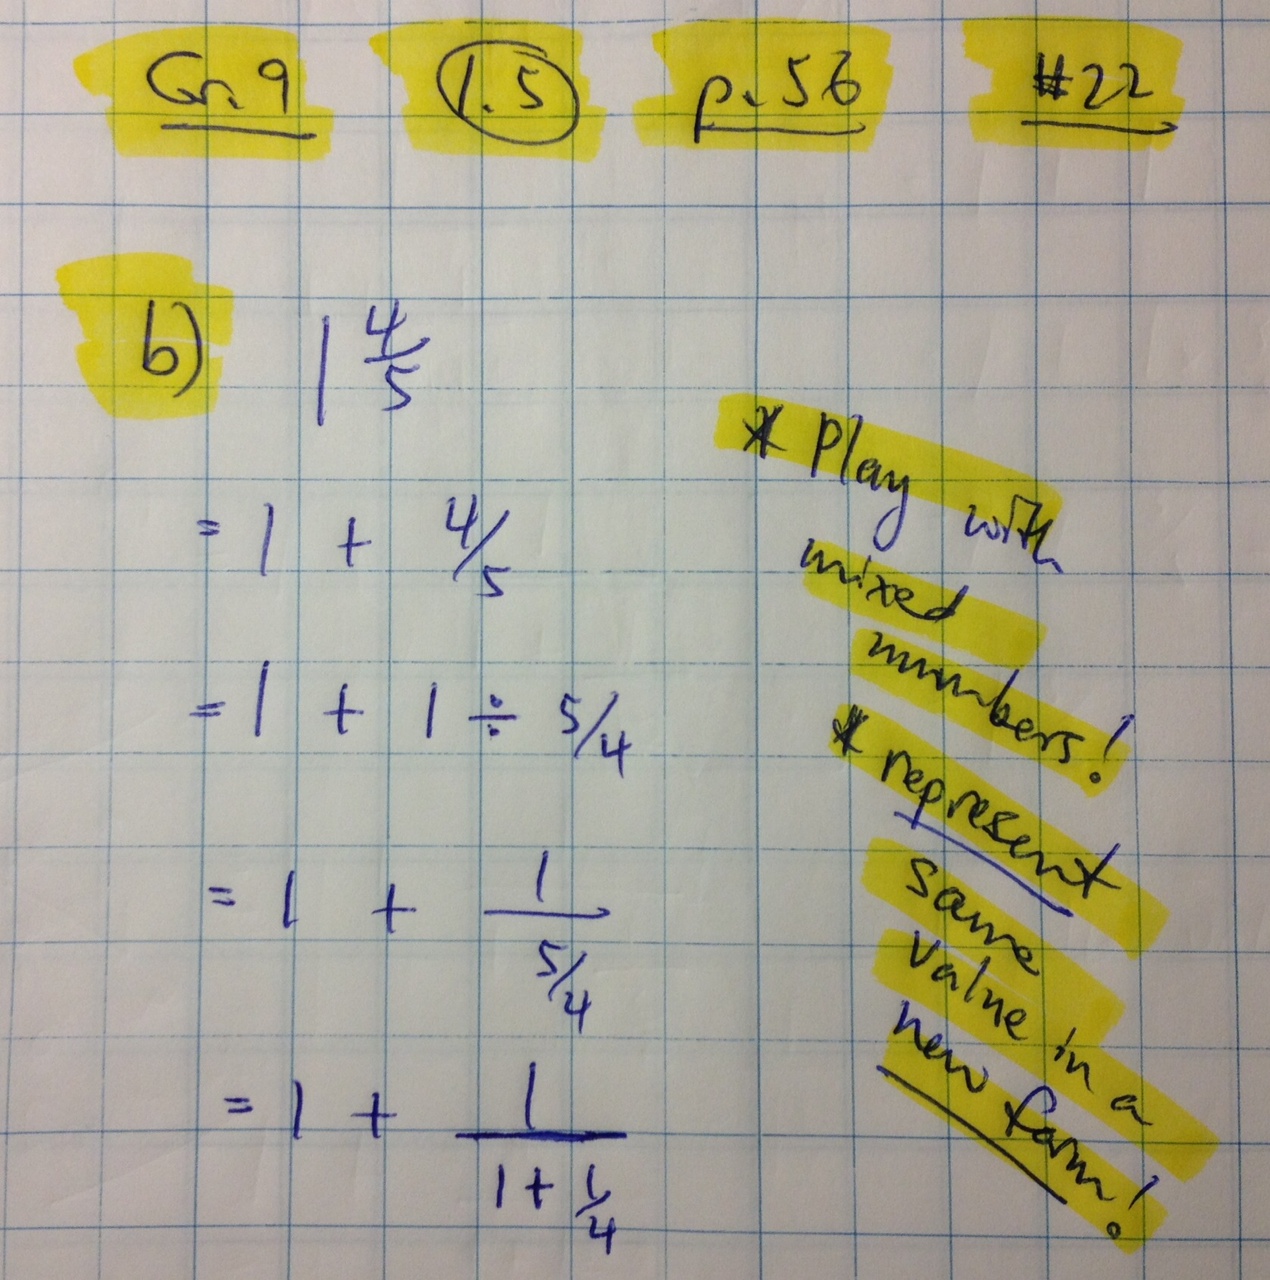 Gr. 9 1.5 p. 56 #22
b) 1 4/5
= 1 + 4/5
= 1 + 1 ÷ 5/4
= 1 + 1/(5/4)
= 1 + 1/(1 + 1/4)
* Play with
mixed
numbers!
* represent
same
value in a
new form!